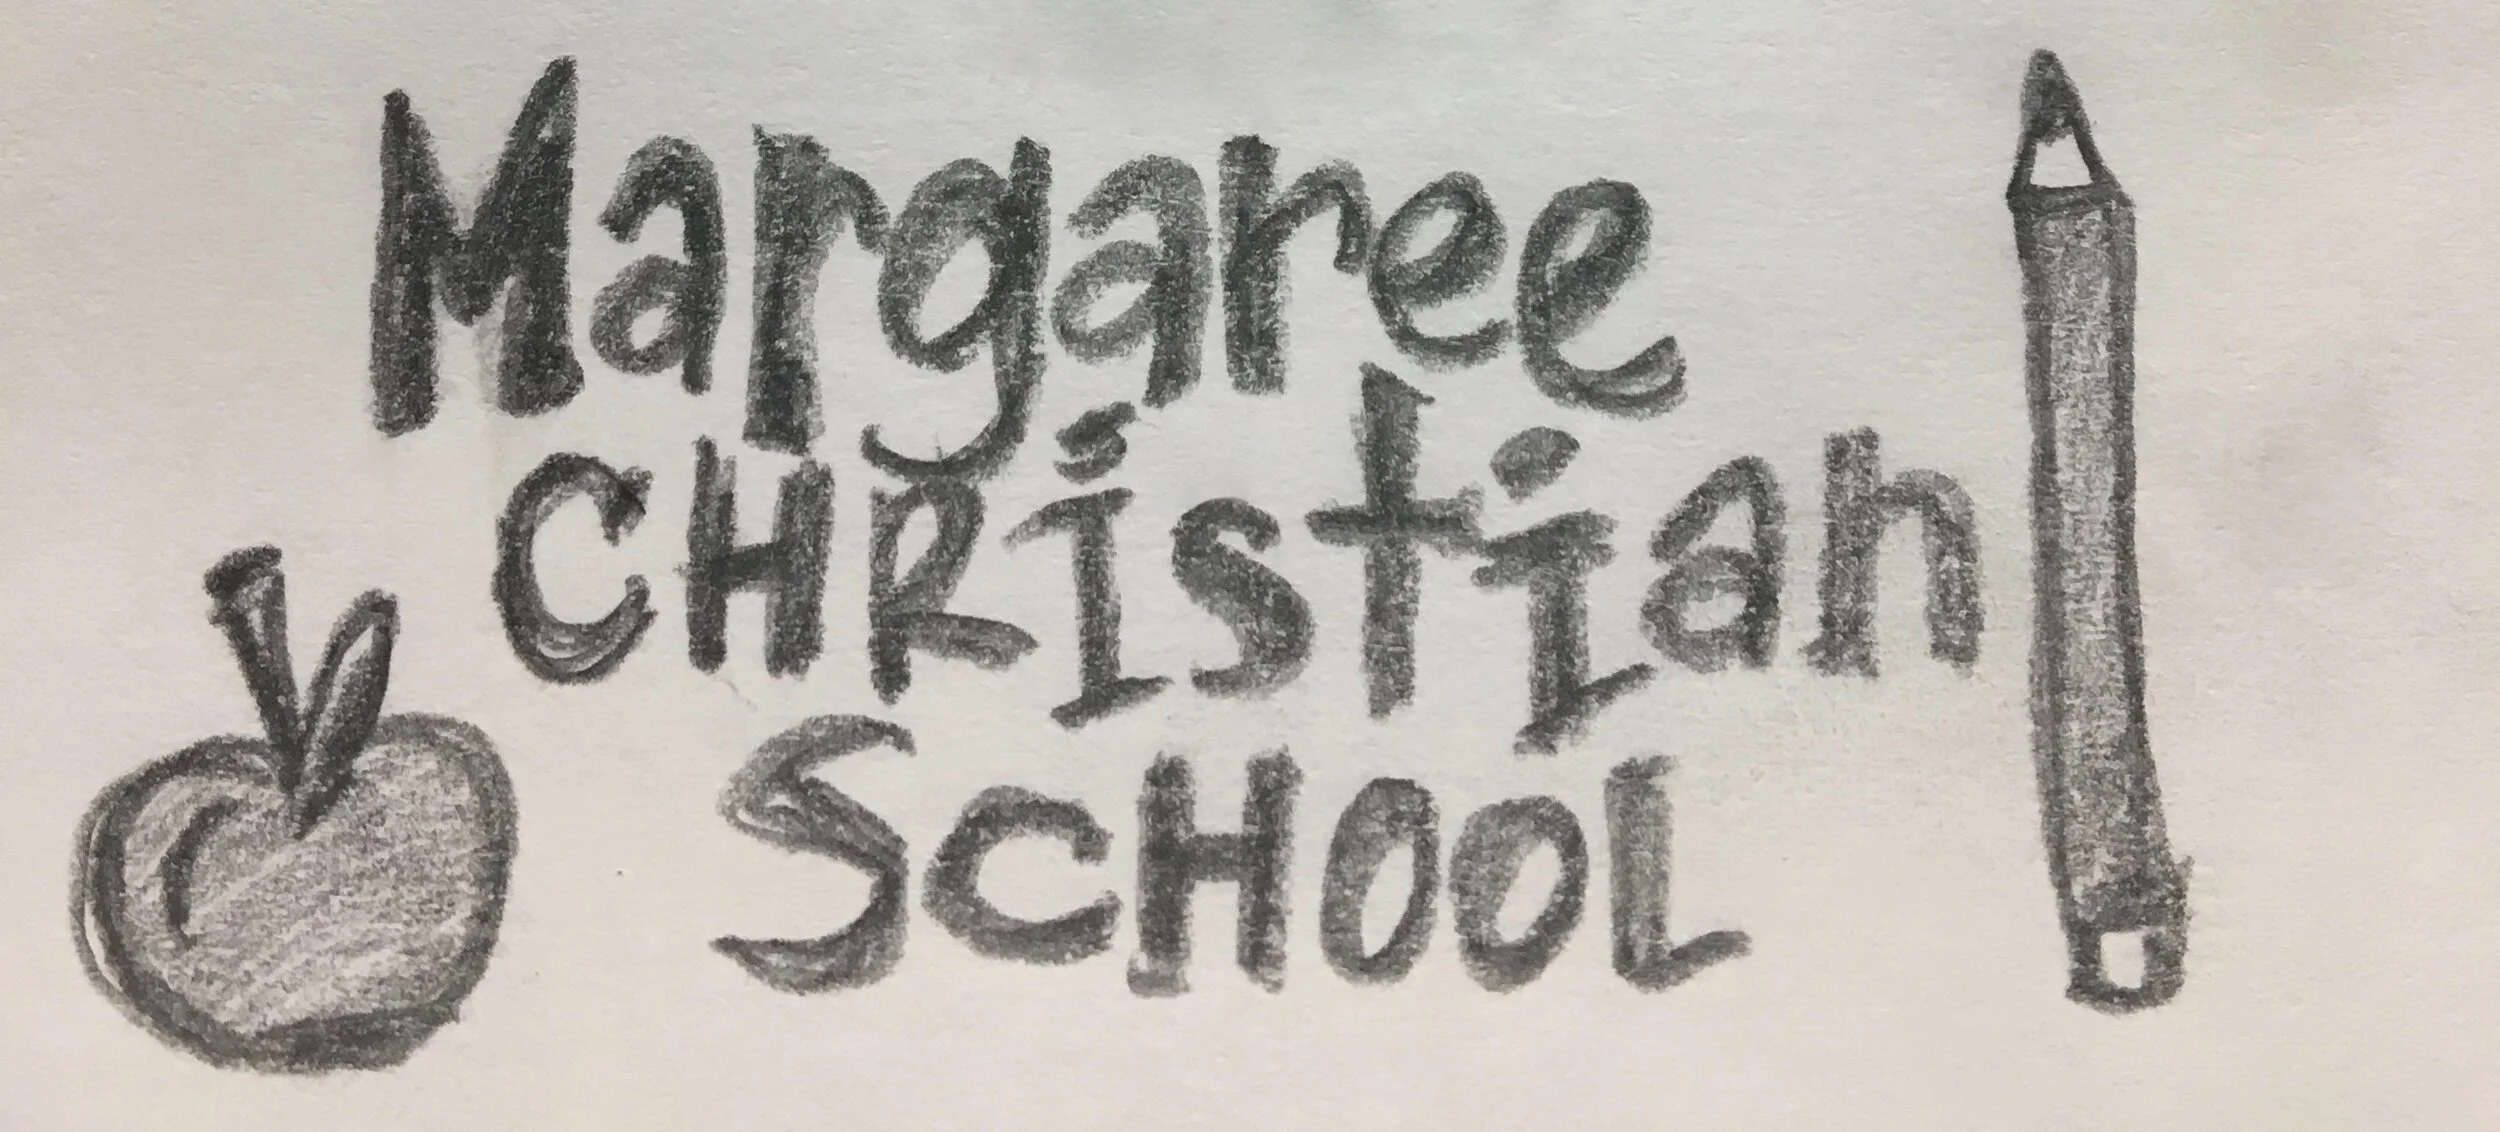 Margaree
CHRiStian
ScHOOL